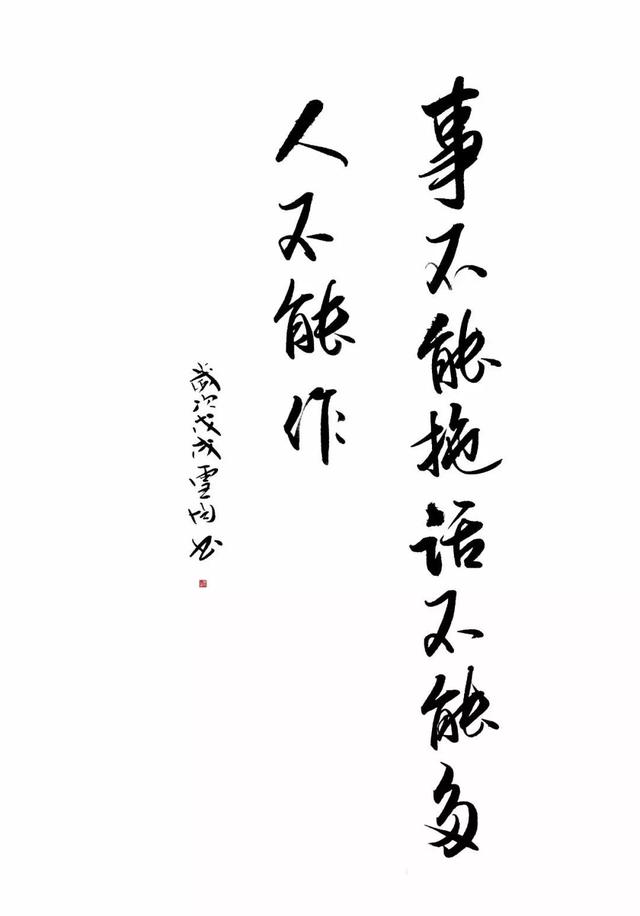 事不能拖话不能多
人不能作
歲次戊戌雪陶书